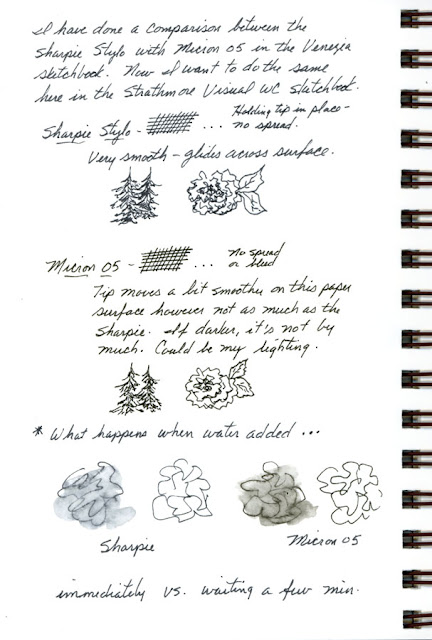 I have done a comparison between the
Sharpie Stylo with Micron 05 in the Venezia
sketchbook. Now I want to do the same
here in the Strathmore Visual WC Sketchbook.
Sharpie Stylo - ... Holding tip in place -
no spread.
Very smooth - glides across surface.
Micron 05 - ... no spread
or bleed
Tip moves a bit smoother on this paper
surface however not as much as the
Sharpie. If darker, it's not by
much. Could be my lighting.
* What happens when water added ...
Sharpie Micron 05
immediately vs. waiting a few min.